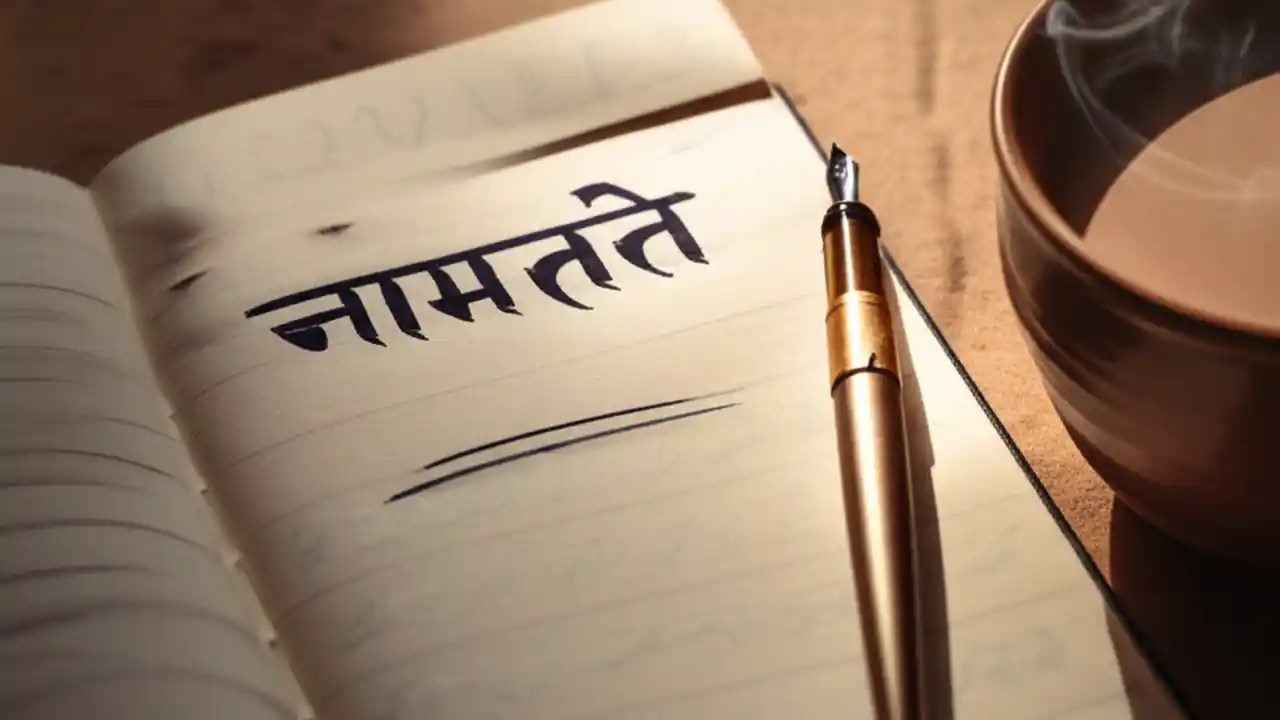 नामतते